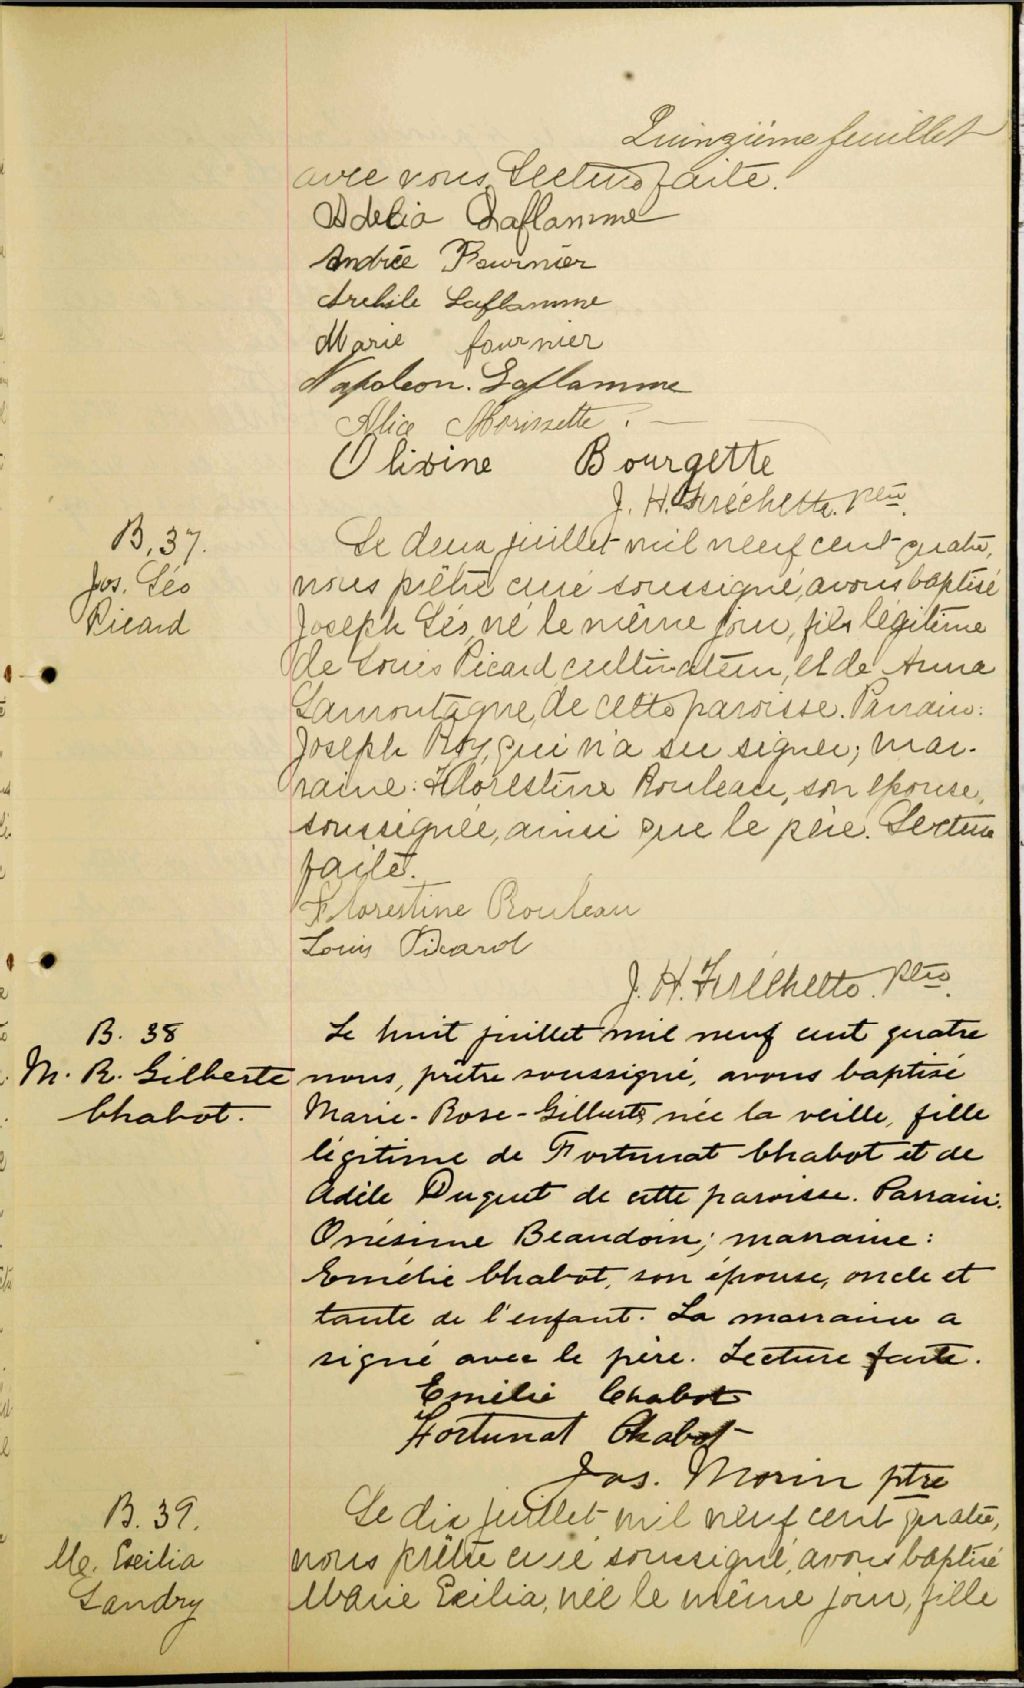 Quinzième feuillet
avec nous. Lecture faite.
Adelia Laflamme
Andrée Fournier
Archile Laflamme
Marie fournier
Napoleon. Laflamme
Alice Morissette.
Olivine Bourgette
J. H. Fréchette. ptre.
B. 37.
Jos. Léo
Picard
Le deux juillet mil neuf cent quatre,
nous prêtre curé soussigné, avons baptisé
Joseph Léo, né le même jour, fils légitime
de Louis Picard, cultivateur, et de Anna
Lamontagne, de cette paroisse. Parrain:
Joseph Roy, qui n'a su signer; mar-
raine: Florestine Rouleau, son épouse,
soussignée, ainsi que le père. Lecture
faite.
Florestine Rouleau
Louis Picard
J. H. Fréchette. ptre.
B. 38
M. R. Gilberte
Chabot.
Le huit juillet mil neuf cent quatre
nous, prêtre soussigné, avons baptisé
Marie-Rose-Gilberte, née la veille, fille
légitime de Fortunat Chabot et de
Adèle Duquet de cette paroisse. Parrain:
Onésime Beaudoin; marraine:
Emélie Chabot, son épouse, oncle et
tante de l'enfant. La marraine a
signé avec le père. Lecture faite.
Emélie Chabot
Fortunat Chabot
Jos. Morin ptre
B. 39.
Me. Exilia
Landry
Le dix juillet mil neuf cent quatre,
nous prêtre curé soussigné, avons baptisé
Marie Exilia, née le même jour, fille